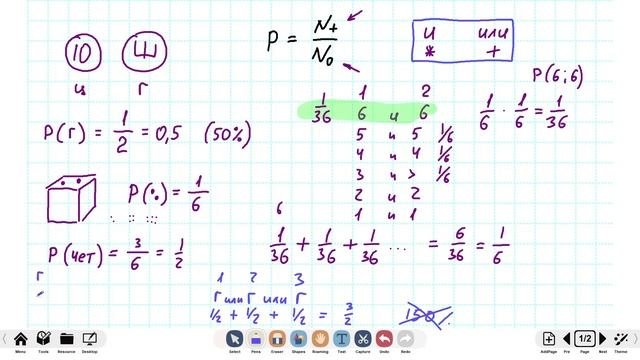 10 Щ
ц г
P = N+ / N0
и или
* +
P(г) = 1/2 = 0,5 (50%)
P(⚁) = 1/6
P(чет) = 3/6 = 1/2
1 2
1/36 6 и 6
5 и 5 1/6
4 и 4 1/6
3 и 3 1/6
2 и 2
1 и 1
P(6;6)
1/6 · 1/6 = 1/36
6
1/36 + 1/36 + 1/36 ... = 6/36 = 1/6
г
1 2 3
г или г или г
1/2 + 1/2 + 1/2 = 3/2
150%
Menu Tools Resource Desktop
Select Pens Eraser Shapes Roaming Text Capture Undo Redo
AddPage Prev 1/2 Page Next Thumb